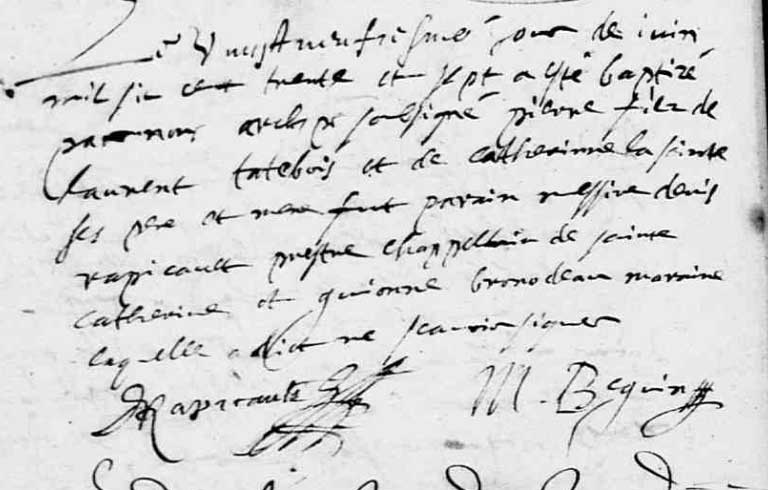 Le vingt neufiesme jour de juin
mil six cent trente et sept a esté baptizé
par nous archpr soubsigné pierre filz de
laurent tatebois et de catherinne la sainte
ses pere et mere fut parain messire denis
rapicault prestre chappellain de sainte
catherine et guionne bronodeau maraine
laquelle a dict ne scavoir signer
DRapicault M. Bequin